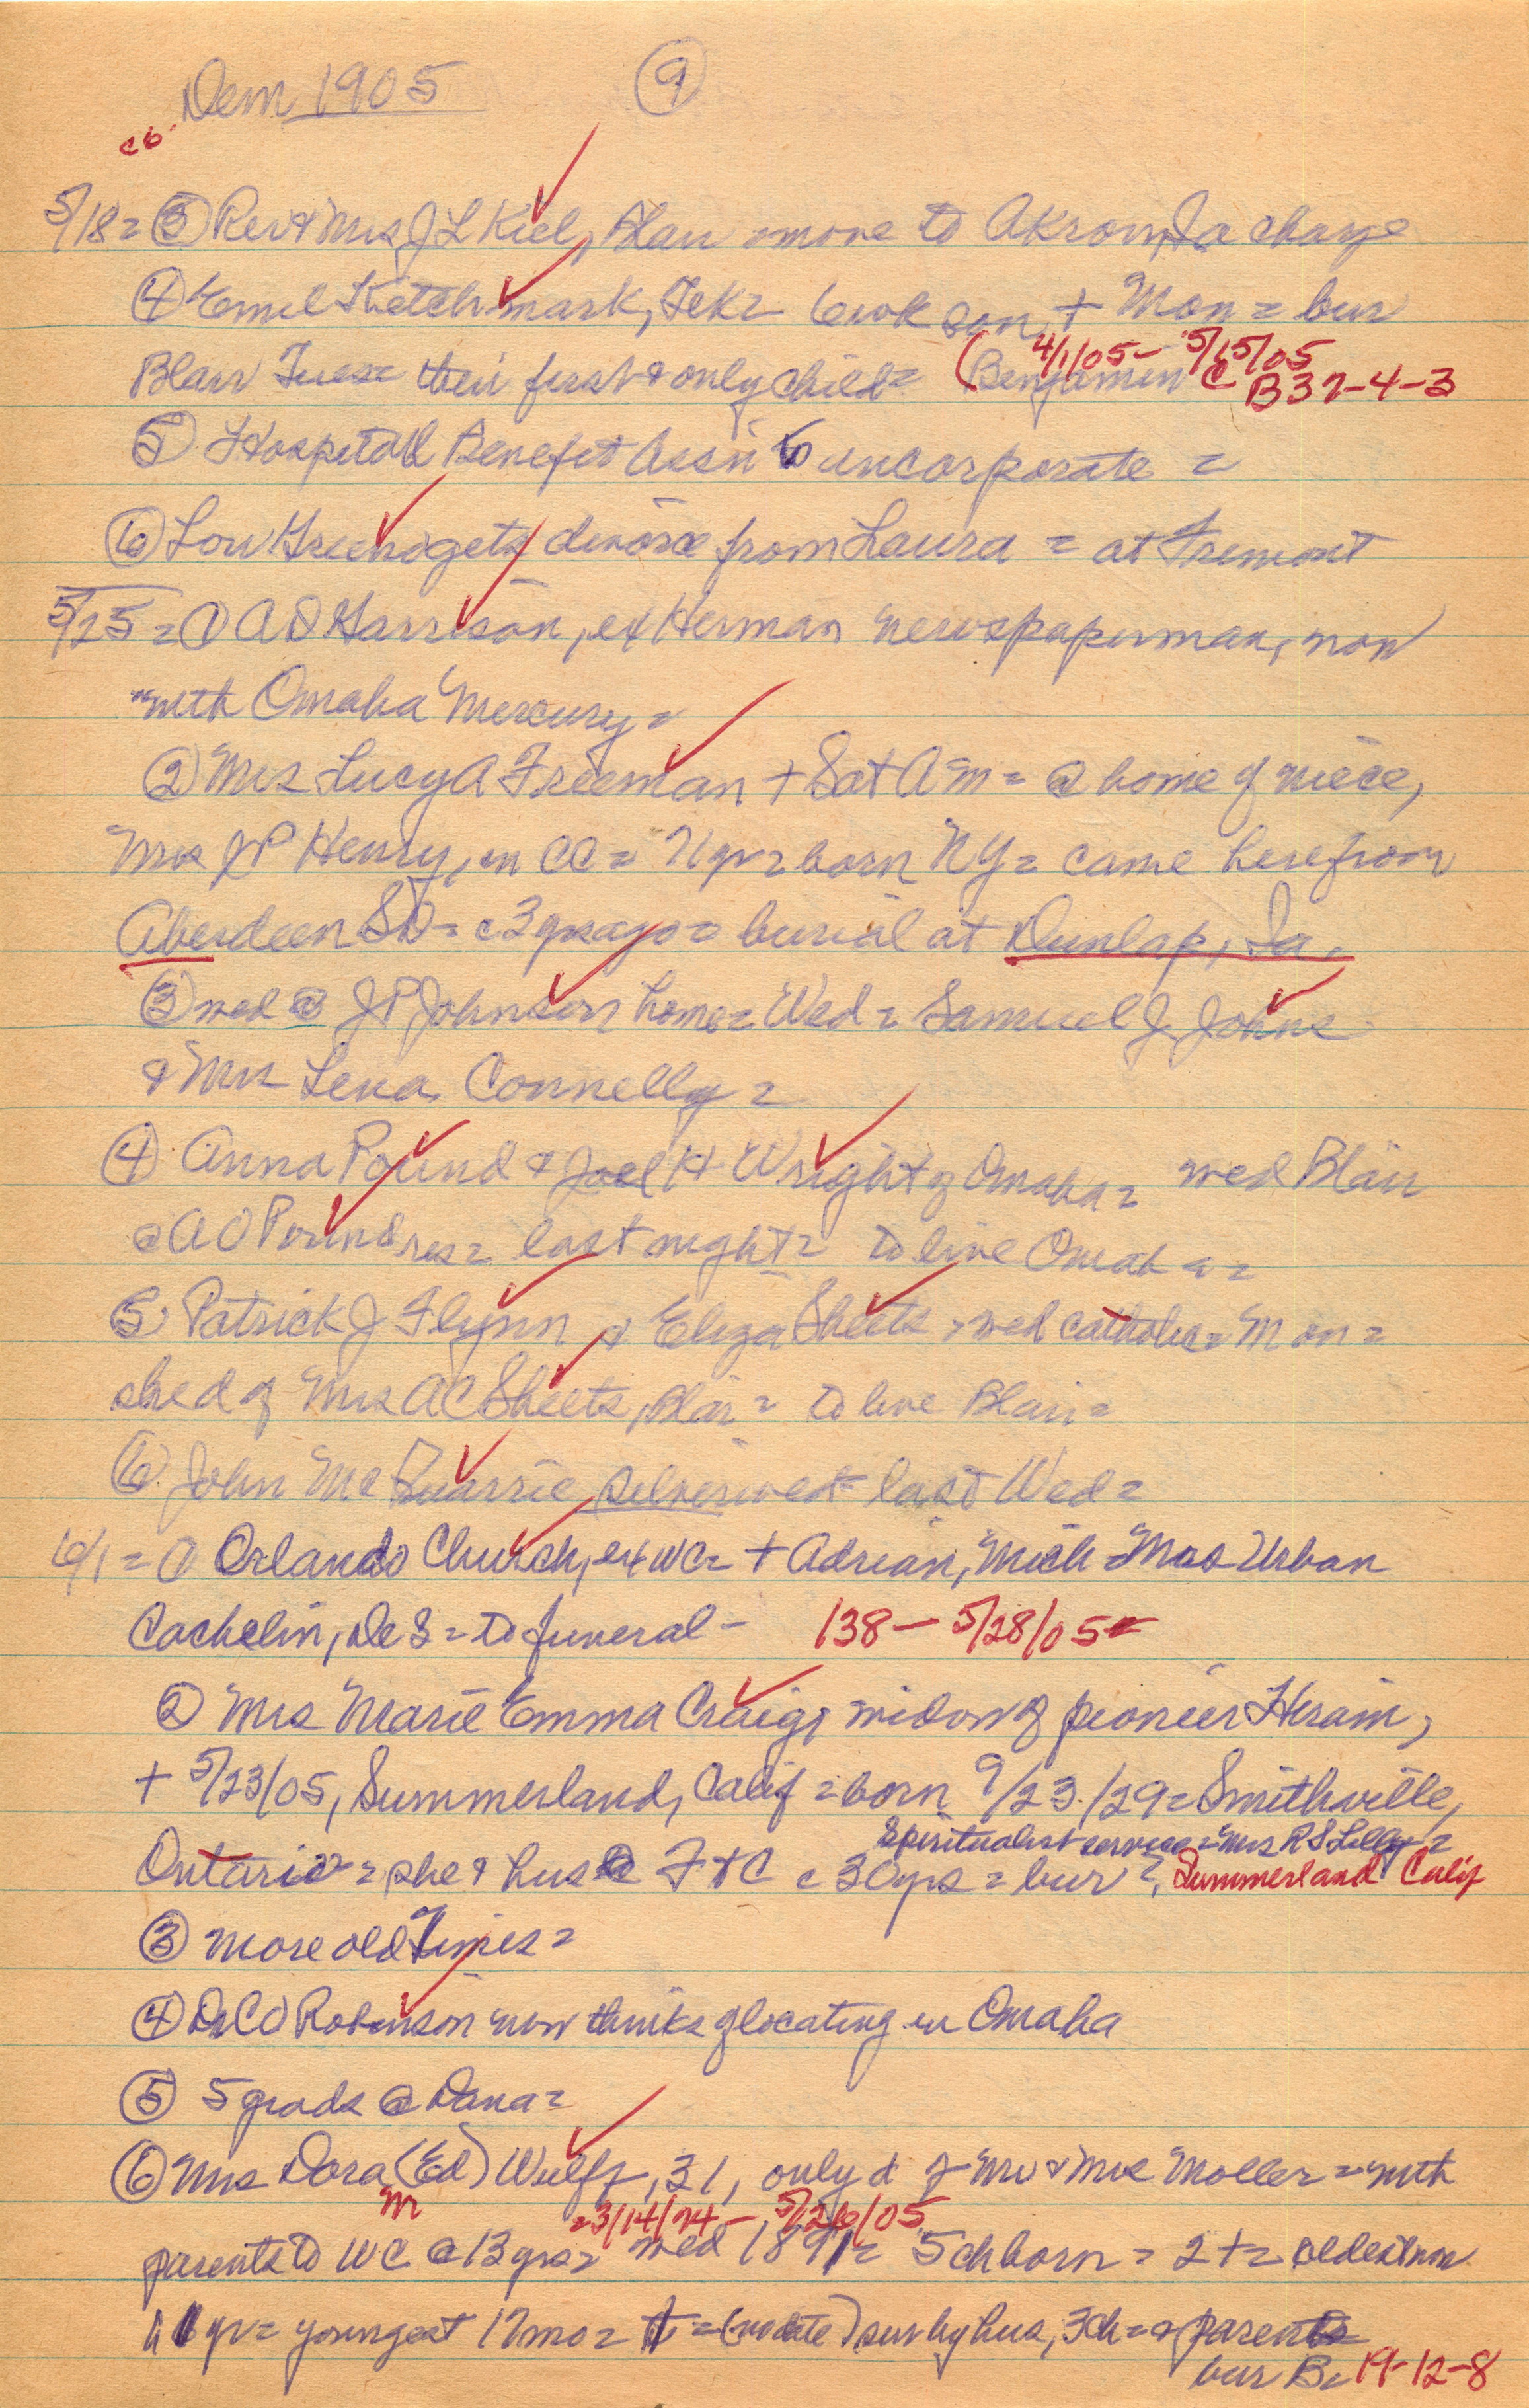 Dem 1905 9
cb
5/18 = 3 Rev & Mrs J L Kiel, Blair move to Akron, Ia charge
4 Emil Ketchmark, Tek = 6wk son + Mon = bur
Blair Tues = their first & only child = (Benjamin C 4/1/05 - 5/15/05 B37-4-3
5 Hospital Benefit Assn to incorporate =
6 Lou gets divorce from Laura = at Fremont
5/25 = 1 A D Garrison, ex Herman newspaperman, now
with Omaha Mercury =
2 Mrs Lucy A Freeman + Sat A m = @ home of niece,
Mrs J P Henry, in CC = 71 yr = born NY = came here from
Aberdeen SD = c 3 yrs ago = burial at Dunlap, Ia.
3 wed @ J P Johnson home = Wed = Samuel J. Johns
& Mrs Lena Connelly =
4 Anna Pound & Joel H Wright of Omaha = wed Blair
@ A O Pound res = last night = to live Omaha =
5 Patrick J Flynn & Eliza Sheets, wed catholic = Mon =
she d of Mrs A C Sheets, Blair = to live Blair =
6 John McQuarrie silver wed last Wed =
6/1 = 1 Orlando Church, ex WC = + Adrian, Mich = Mrs Urban
Cachelin, De S = to funeral - 138 - 5/28/05
2 Mrs Marie Emma Craig, widow of pioneer Hiram,
+ 5/23/05, Summerland, Calif = born 9/23/29 = Smithville,
Spiritualist service = Mrs R S Lilly =
Ontario = she & hus @ Ft C c 30 yrs = bur ?, Summerland Calif
3 more old Times =
4 Dr C O Robinson now thinks of locating in Omaha
5 5 grads @ Dana =
6 Mrs Dora (Ed) Wulff, 31, only d of Mr & Mrs Moller = with
M = 3/14/74 - 5/26/05
parents to WC @ 13 yrs = wed 1891 = 5 ch born = 2 + = oldest now
11 yr = youngest 17 mo = + = (no date) sur by hus, 3 ch = & parents
bur B = 19-12-8